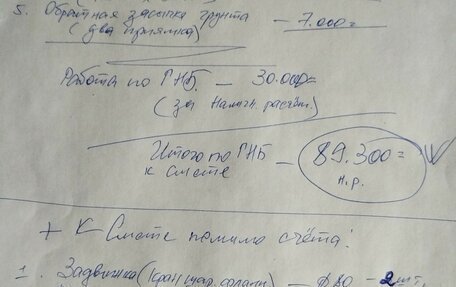 5. Обратная засыпка грунта – 7.000=
(два приямка)
Работа по ГНБ. – 30.000=
(за наличн. расчёт.)
Итого по ГНБ – 89.300=
к смете
н.р.
+ К Смете помимо счёта:
1. Задвижка (кран шар. фланц) – ф80 – 2шт.